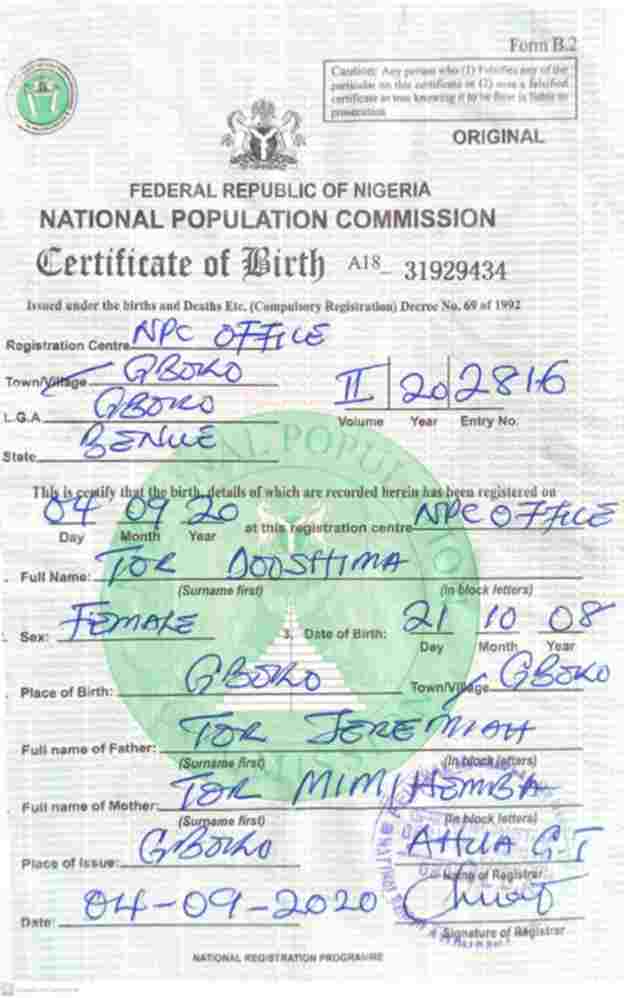 Form B.2
Caution: Any person who (1) Falsifies any of the
particular on this certificate or (2) uses a falsified
certificate as true knowing it to be false is liable to
prosecution
ORIGINAL
FEDERAL REPUBLIC OF NIGERIA
NATIONAL POPULATION COMMISSION
Certificate of Birth A18_ 31929434
Issued under the births and Deaths Etc. (Compulsory Registration) Decree No. 69 of 1992
Registration Centre NPC OFFICE
Town/Village GBOKO
L.G.A. GBOKO
State BENUE
II 20 2816
Volume Year Entry No.
This is certify that the birth, details of which are recorded herein has been registered on
04 09 20 at this registration centre NPC OFFICE
Day Month Year
Full Name: TOR DOOSHIMA
(Surname first) (In block letters)
Sex: FEMALE 3. Date of Birth: 21 10 08
Day Month Year
Place of Birth: GBOKO Town/Village GBOKO
Full name of Father: TOR JEREMIAH
(Surname first) (In block letters)
Full name of Mother: TOR MIMIHEMBA
(Surname first) (In block letters)
Place of Issue: GBOKO AHUA G-T
Name of Registrar
Date: 04-09-2020
Signature of Registrar
NATIONAL REGISTRATION PROGRAMME